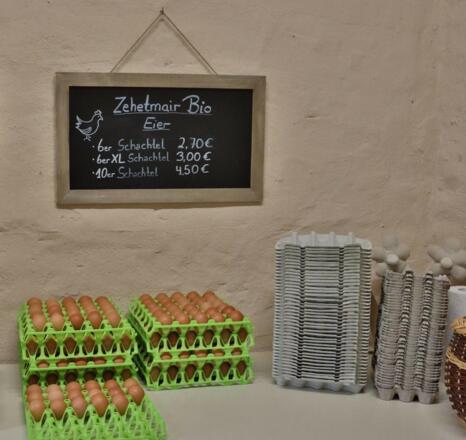 Zehetmair Bio
Eier
• 6er Schachtel 2,70 €
• 6er XL Schachtel 3,00 €
• 10er Schachtel 4,50 €